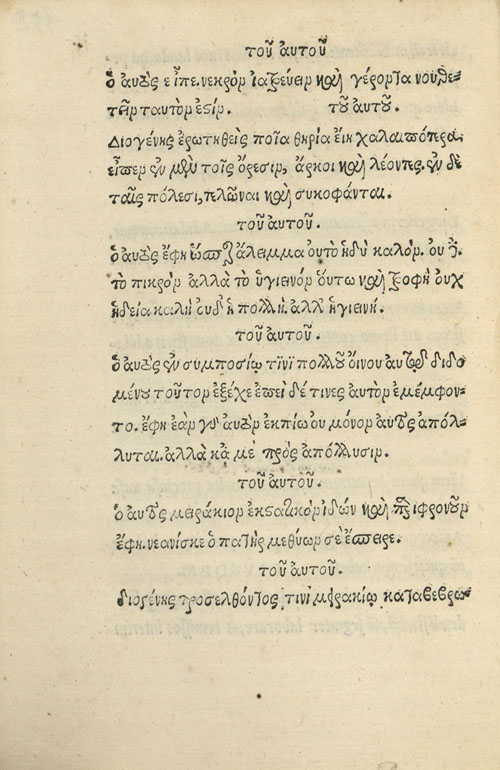 τοῦ αὐτοῦ
ὁ αὐτὸς εἶπε. νεκρὸν ἰατρεύειν καὶ γέροντα νουθε-
τεῖν ταυτὸν ἐσίν. τοῦ αὐτοῦ.
Διογένης ἐρωτηθεὶς ποῖα θηρία εἴη χαλαιπότερα.
εἶπεν ἐν μὲν τοῖς ὄρεσιν, ἄρκοι καὶ λέοντες. ἐν δὲ
ταῖς πόλεσι, τελῶναι καὶ συκοφάνται.
τοῦ αὐτοῦ.
ὁ αὐτὸς ἔφη ὥσπερ ἄλειμμα οὐ τὸ ἡδὺ καλόν. οὐ
τὸ πικρὸν ἀλλὰ τὸ ὑγιενόν οὕτω καὶ τροφὴ οὐχ
ἡδεία καλὴ οὐδ' ἡ πολλή. ἀλλ' ἡ ὑγιενή.
τοῦ αὐτοῦ.
ὁ αὐτὸς ἐν συμποσίῳ τινὶ πολλοῦ οἴνου αὐτῷ διδο
μένου τοῦτον ἐξέχε ἐπεὶ δέ τινες αὐτὸν ἐμέμφον-
το. ἔφη ἐὰν γὰρ αὐτὸν ἐκπίω οὐ μόνον αὐτὸς ἀπόλ-
λυται. ἀλλὰ κᾳ μὲ πρὸς ἀπόλλυσιν.
τοῦ αὐτοῦ.
ὁ αὐτὸς μειράκιον ἐκστατικὸν ἰδὼν καὶ παραφρονοῦν
ἔφη. νεανίσκε ὁ πατήρ μεθύων σὲ ἔσπειρε.
τοῦ αὐτοῦ.
Διογένης προσελθόντος τινι μειρακίῳ καταβεβρω-